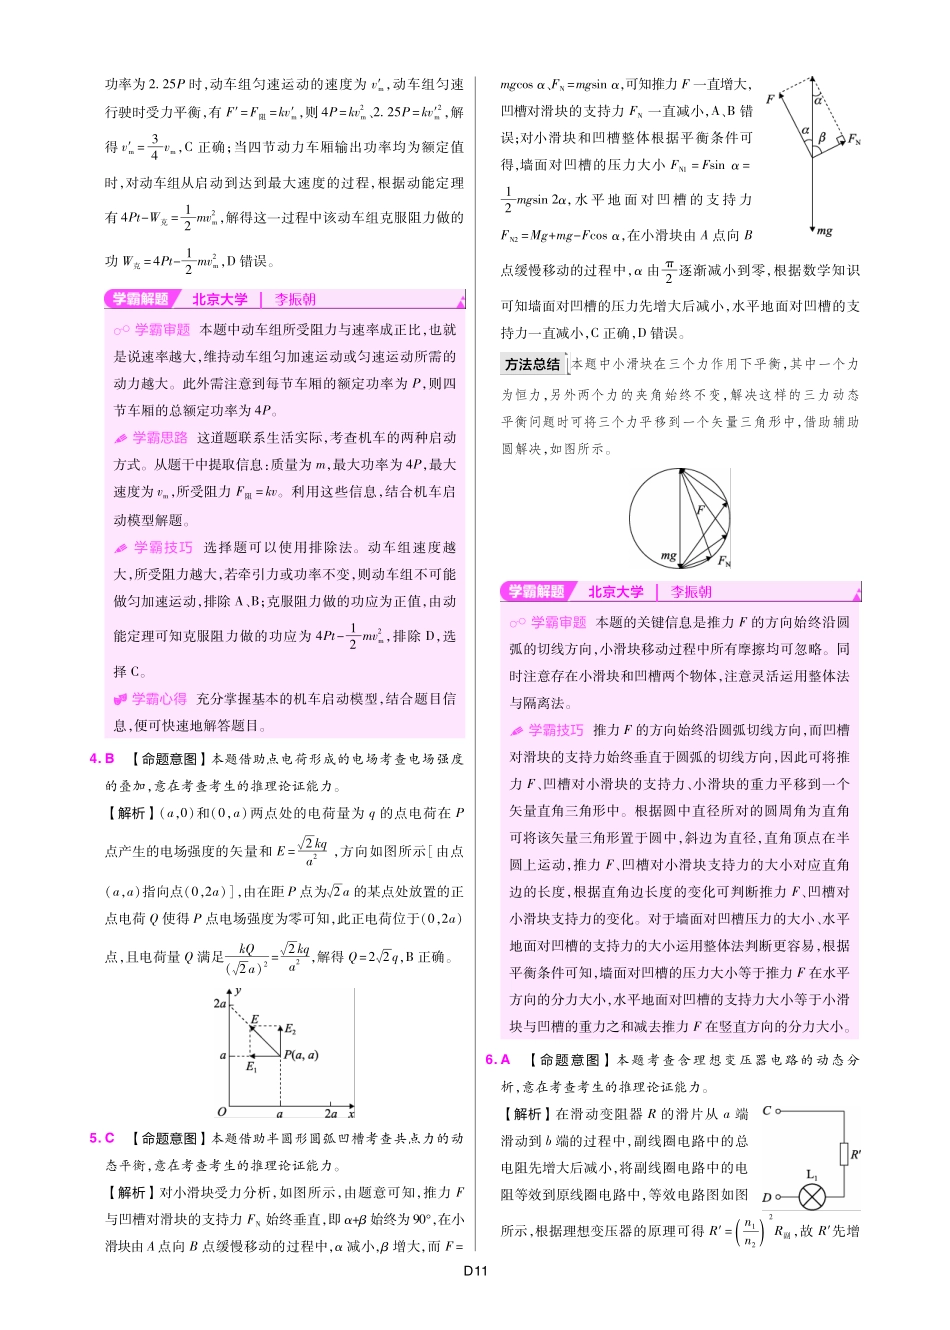 功率为 2. 25P 时,动车组匀速运动的速度为 v′m,动车组匀速
行驶时受力平衡,有 F′=F阻=kv′m,则 4P=kv²m、2. 25P=kv′²m,解
得 v′m=3/4 vm,C 正确;当四节动力车厢输出功率均为额定值
时,对动车组从启动到达到最大速度的过程,根据动能定理
有 4Pt-W克=1/2 mv²m,解得这一过程中该动车组克服阻力做的
功 W克=4Pt-1/2 mv²m,D 错误。
学霸解题 北京大学 | 李振朝
学霸审题 本题中动车组所受阻力与速率成正比,也就
是说速率越大,维持动车组匀加速运动或匀速运动所需的
动力越大。此外需注意到每节车厢的额定功率为 P,则四
节车厢的总额定功率为 4P。
学霸思路 这道题联系生活实际,考查机车的两种启动
方式。从题干中提取信息:质量为 m,最大功率为 4P,最大
速度为 vm,所受阻力 F阻=kv。利用这些信息,结合机车启
动模型解题。
学霸技巧 选择题可以使用排除法。动车组速度越
大,所受阻力越大,若牵引力或功率不变,则动车组不可能
做匀加速运动,排除 A、B;克服阻力做的功应为正值,由动
能定理可知克服阻力做的功应为 4Pt-1/2 mv²m,排除 D,选
择 C。
学霸心得 充分掌握基本的机车启动模型,结合题目信
息,便可快速地解答题目。
4. B 【命题意图】本题借助点电荷形成的电场考查电场强度
的叠加,意在考查考生的推理论证能力。
【解析】(a,0)和(0,a)两点处的电荷量为 q 的点电荷在 P
点产生的电场强度的矢量和 E=√2kq/a²,方向如图所示[由点
(a,a)指向点(0,2a)],由在距 P 点为√2a 的某点处放置的正
点电荷 Q 使得 P 点电场强度为零可知,此正电荷位于(0,2a)
点,且电荷量 Q 满足kQ/(√2a)²=√2kq/a²,解得 Q=2√2q,B 正确。
y
2a
E
E2
a
P(a, a)
E1
O
a
2a
x
5. C 【命题意图】本题借助半圆形圆弧凹槽考查共点力的动
态平衡,意在考查考生的推理论证能力。
【解析】对小滑块受力分析,如图所示,由题意可知,推力 F
与凹槽对滑块的支持力 FN 始终垂直,即 α+β 始终为 90°,在小
滑块由 A 点向 B 点缓慢移动的过程中,α 减小,β 增大,而 F=
mgcos α、FN=mgsin α,可知推力 F 一直增大,
凹槽对滑块的支持力 FN 一直减小,A、B 错
误;对小滑块和凹槽整体根据平衡条件可
得,墙面对凹槽的压力大小 FN1=Fsin α=
1/2 mgsin 2α,水平地面对凹槽的支持力
FN2=Mg+mg-Fcos α,在小滑块由 A 点向 B
点缓慢移动的过程中,α 由 π/2 逐渐减小到零,根据数学知识
可知墙面对凹槽的压力先增大后减小,水平地面对凹槽的支
持力一直减小,C 正确,D 错误。
F
α
α
β
FN
mg
方法总结 本题中小滑块在三个力作用下平衡,其中一个力
为恒力,另外两个力的夹角始终不变,解决这样的三力动态
平衡问题时可将三个力平移到一个矢量三角形中,借助辅助
圆解决,如图所示。
F
mg
FN
学霸解题 北京大学 | 李振朝
学霸审题 本题的关键信息是推力 F 的方向始终沿圆
弧的切线方向,小滑块移动过程中所有摩擦均可忽略。同
时注意存在小滑块和凹槽两个物体,注意灵活运用整体法
与隔离法。
学霸技巧 推力 F 的方向始终沿圆弧切线方向,而凹槽
对滑块的支持力始终垂直于圆弧的切线方向,因此可将推
力 F、凹槽对小滑块的支持力、小滑块的重力平移到一个
矢量直角三角形中。根据圆中直径所对的圆周角为直角
可将该矢量三角形置于圆中,斜边为直径,直角顶点在半
圆上运动,推力 F、凹槽对小滑块支持力的大小对应直角
边的长度,根据直角边长度的变化可判断推力 F、凹槽对
小滑块支持力的变化。对于墙面对凹槽压力的大小、水平
地面对凹槽的支持力的大小运用整体法判断更容易,根据
平衡条件可知,墙面对凹槽的压力大小等于推力 F 在水平
方向的分力大小,水平地面对凹槽的支持力大小等于小滑
块与凹槽的重力之和减去推力 F 在竖直方向的分力大小。
6. A 【命题意图】本题考查含理想变压器电路的动态分
析,意在考查考生的推理论证能力。
【解析】在滑动变阻器 R 的滑片从 a 端
滑动到 b 端的过程中,副线圈电路中的总
电阻先增大后减小,将副线圈电路中的电
阻等效到原线圈电路中,等效电路图如图
所示,根据理想变压器的原理可得 R′=(n1/n2)²R副,故 R′先增
C
R′
L1
D
D11